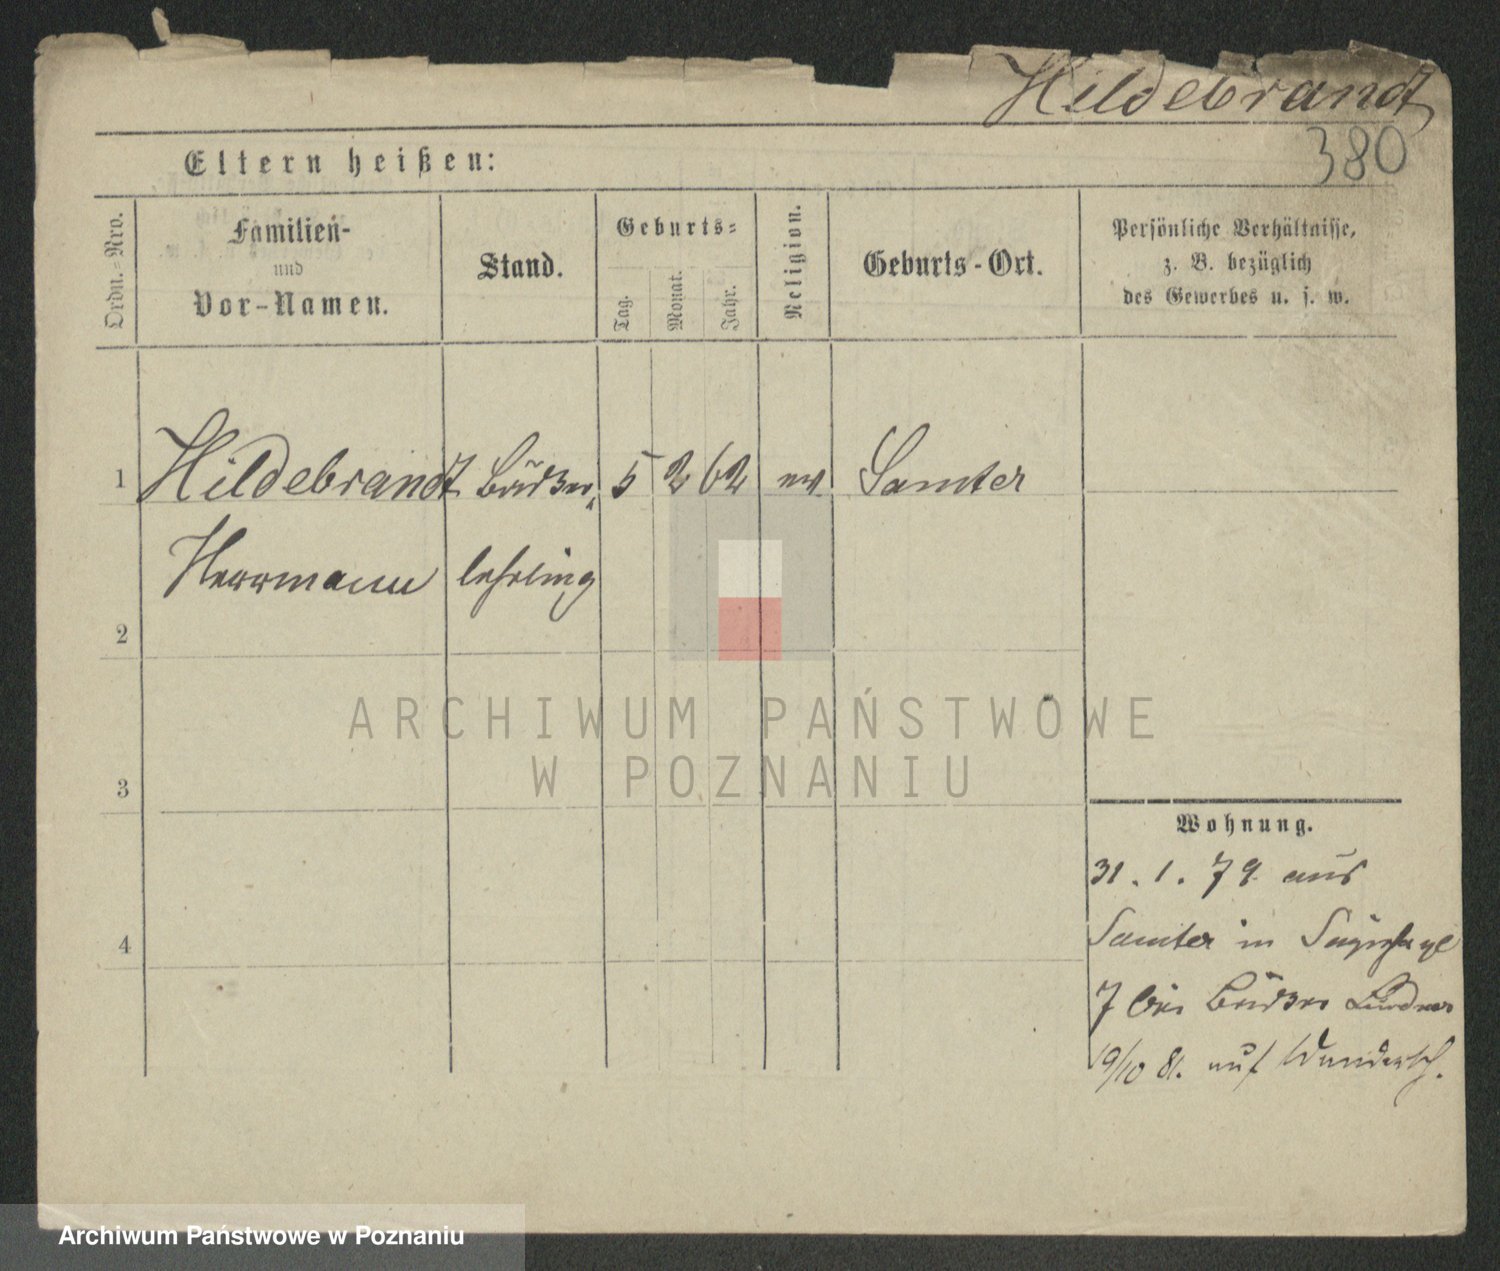 Hildebrandt
380
Eltern heißen:
Ordn.=Nro.
Familien-
und
Vor-Namen.
Stand.
Geburts=
Tag.
Monat.
Jahr.
Religion.
Geburts-Ort.
Persönliche Verhältnisse,
z. B. bezüglich
des Gewerbes u. s. w.
1 Hildebrandt 5 2 62 ev Samter
Herrmann lehrling
2
ARCHIWUM PAŃSTWOWE
W POZNANIU
3
Wohnung.
31. 1. 79 aus
4
Samter in
7 bei
19/10 81. auf Wandersch.
Archiwum Państwowe w Poznaniu